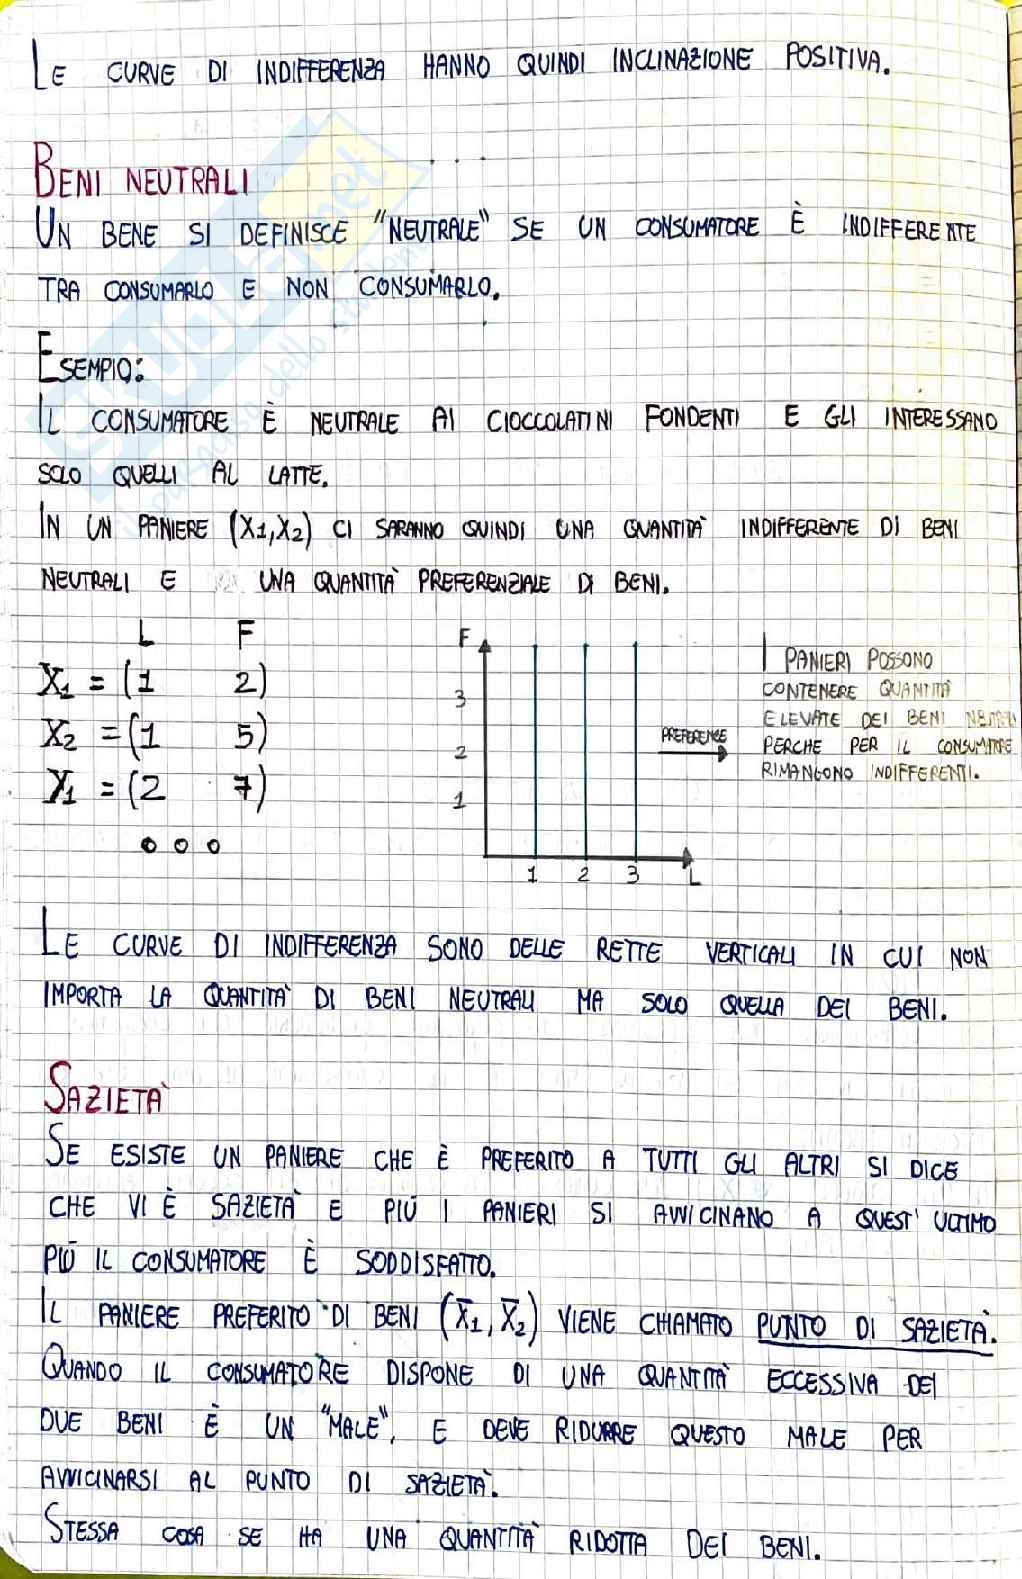 LE CURVE DI INDIFFERENZA HANNO QUINDI INCLINAZIONE POSITIVA.
BENI NEUTRALI
UN BENE SI DEFINISCE "NEUTRALE" SE UN CONSUMATORE È INDIFFERENTE
TRA CONSUMARLO E NON CONSUMARLO.
ESEMPIO:
IL CONSUMATORE È NEUTRALE AI CIOCCOLATINI FONDENTI E GLI INTERESSANO
SOLO QUELLI AL LATTE.
IN UN PANIERE (X1,X2) CI SARANNO QUINDI UNA QUANTITÀ INDIFFERENTE DI BENI
NEUTRALI E UNA QUANTITÀ PREFERENZIALE DI BENI.
L F
X1 = (1 2)
X2 = (1 5)
X1 = (2 7)
F
3
2
1
1 2 3 L
PREFERENCE
I PANIERI POSSONO
CONTENERE QUANTITÀ
ELEVATE DEI BENI NEUTRALI
PERCHE PER IL CONSUMATORE
RIMANGONO INDIFFERENTI.
LE CURVE DI INDIFFERENZA SONO DELLE RETTE VERTICALI IN CUI NON
IMPORTA LA QUANTITÀ DI BENI NEUTRALI MA SOLO QUELLA DEI BENI.
SAZIETÀ
SE ESISTE UN PANIERE CHE È PREFERITO A TUTTI GLI ALTRI SI DICE
CHE VI È SAZIETÀ E PIÙ I PANIERI SI AVVICINANO A QUEST'ULTIMO
PIÙ IL CONSUMATORE È SODDISFATTO.
IL PANIERE PREFERITO DI BENI (X̄1, X̄2) VIENE CHIAMATO PUNTO DI SAZIETÀ.
QUANDO IL CONSUMATORE DISPONE DI UNA QUANTITÀ ECCESSIVA DEI
DUE BENI È UN "MALE", E DEVE RIDURRE QUESTO MALE PER
AVVICINARSI AL PUNTO DI SAZIETÀ.
STESSA COSA SE HA UNA QUANTITÀ RIDOTTA DEI BENI.
SKUOLA.net
il paradiso dello studente